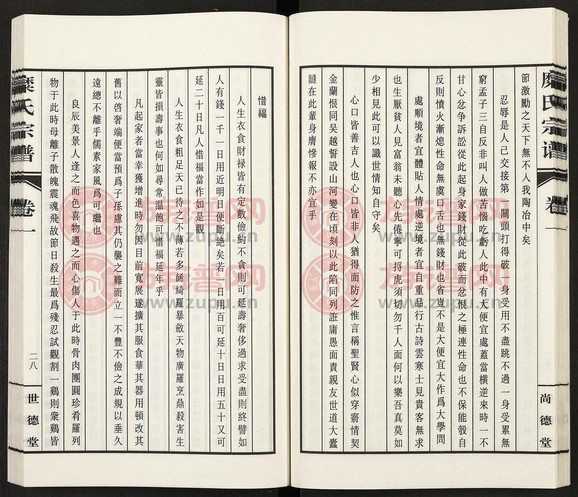 糜氏宗譜
卷一
尚德堂
節激勵之天下無不人我陶冶中矣
忍辱是人己交接第一關頭打得破一身受用不盡跳不過一身受累無
窮孟子三自反非叫人做苦惱吃虧人此中有大便宜處蓋當橫逆來時一不
甘心忿爭訴訟從此起身家錢財從此破而忿恨之極連性命也不保能彀自
反則憤火漸熄性命無虞口舌也無錢財也省豈不是大便宜大作爲大學問
處順境者宜體貼人情處逆境者宜自重品行古詩雲寒士見貴客無求
也生厭貧人見富翁未聽心先倦寧可捋虎須切勿干人面何以樂吾真莫如
少相見此可以識世情知自守矣
心口皆善吉人也心口皆非人猶得面防之惟言稱聖賢心似穿窬情契
金蘭恨同吳越誓設山河變在頃刻以此陷同列誑庸愚面責親友世道大蠹
誰在此輩身膺慘報不亦宜乎
惜福
人生衣食財祿皆有定數儉約不貪則可延壽奢侈過求受盡則終譬如
人有錢一千一日用近明日便斷絶矣若一日用百可延十日日用五十又可
延二十日凡人惜福當作如是觀
人生衣食粗足天已待之不薄若多緘綺羅暴斂天物廣羅烹鼎殺害生
靈皆損壽事也何如尋常溫飽可惜福延年乎
凡起家者當幸獲增進時勿因目前寬展遂擴其服食華其器用頓改其
舊以啓奢端便當預爲子孫慮其仍襲之難而立一不豐不儉之成規以垂久
遠總不離乎儒素家風爲可繼也
良辰美景人逢之而色喜物遇之而心傷人于此時骨肉團圓珍肴羅列
物于此時母離子散魄震魂飛故節日殺生最爲殘忍試觀割一鷄則衆鷄皆
糜氏宗譜
卷一
二八
世德堂
族譜网
www.zupu.cn
族譜网
www.zupu.cn
族譜网
www.zupu.cn
族譜网
www.zupu.cn